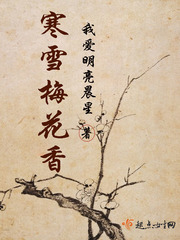 寒雪梅花香
我爱明亮晨星 著
起点中文网